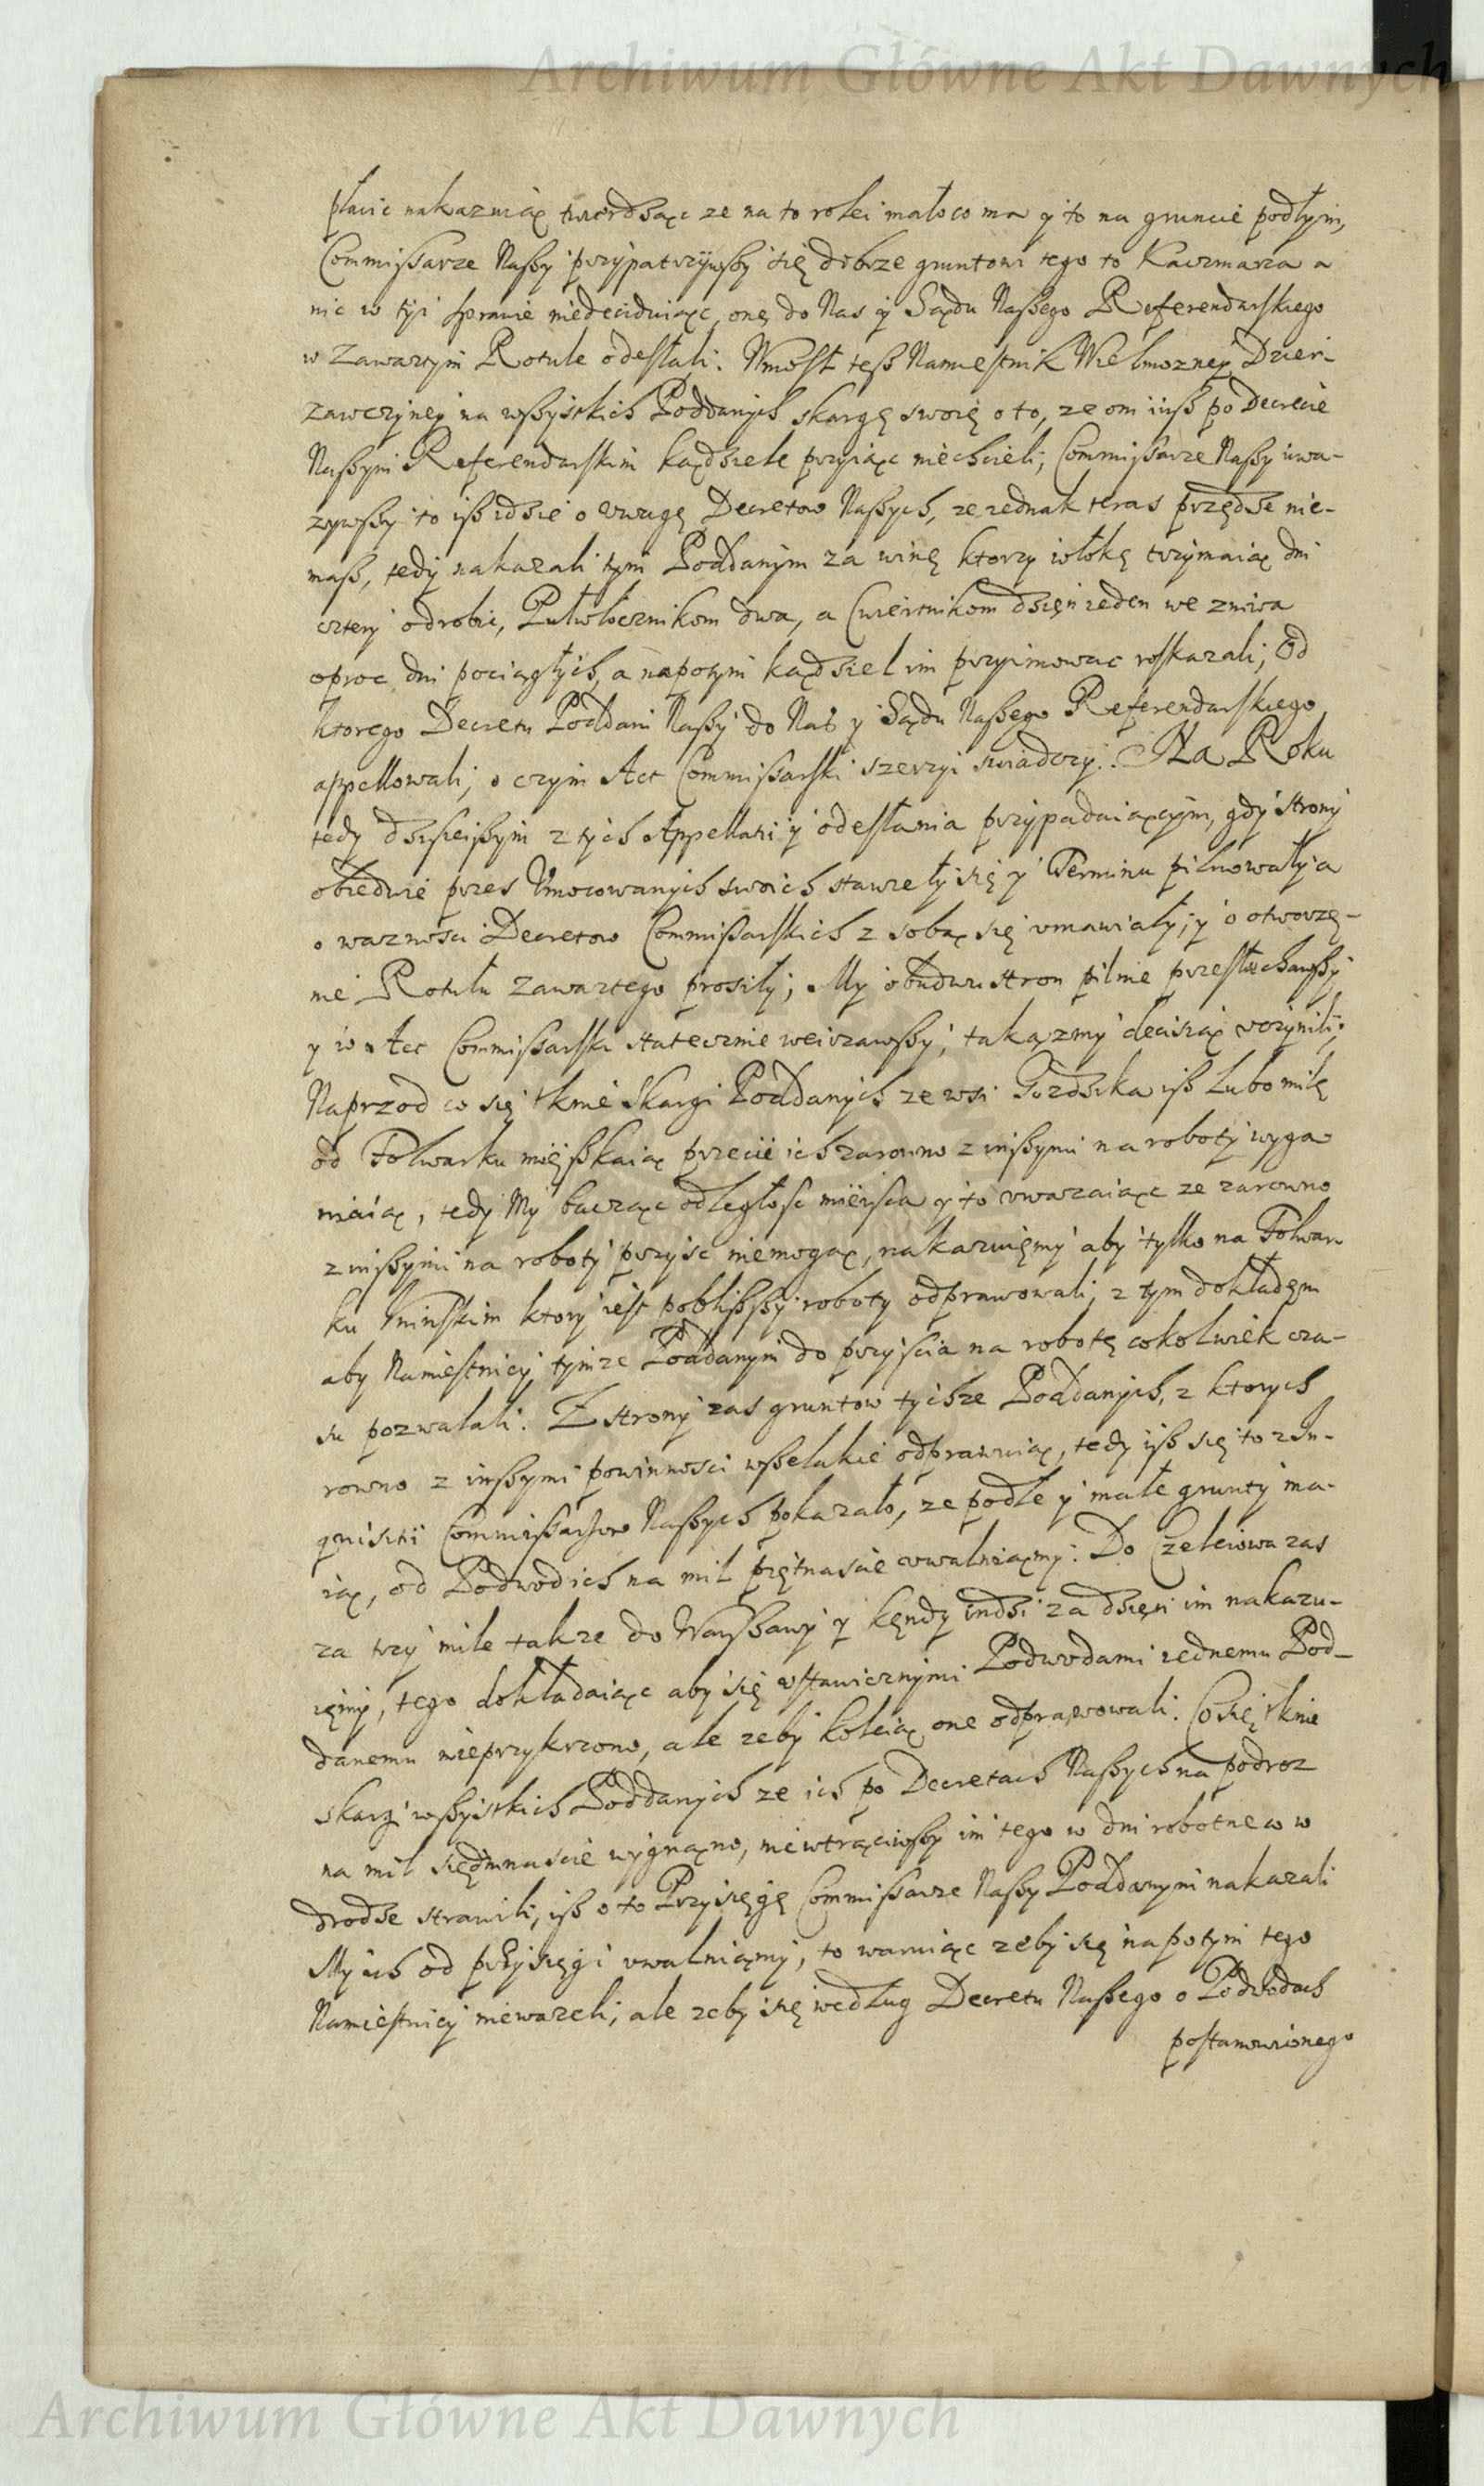 Archiwum Główne Akt Dawnych
płacic nakazuią twierdząc ze na to rolei małoco ma y to na gruncie podłym,
Commissarze Naszy przypatrzywszy się dobrze gruntowi tego to Kaczmarza a
nic w tyi sprawie niedeciduiąc, onę do Nas y Sądu Naszego Referendarskiego
w Zawartym Rotule odesłali. Wniosł tesz Namiestnik Wielmozney Dzier-
zawczyney na wszystkich Poddanych skargę swoię o to, ze oni iusz po Decrecie
Naszym Referendarskim kądziele przyiąc niechcieli, Commissarze Naszy uwa-
zywszy to isz idzie o uwagę Decretow Naszych, ze iednak teras przędze nie-
masz, tedy nakazali tym Poddanym za winę ktorzy włokę trzymaią dni
cztery odrobic, Pułwłocznikom dwa, a Cwiertnikom dzień ieden we zniwa
oproc dni pociągłych, a napotym kądziel im przyimowac roskazali; Od
ktorego Decretu Poddani Naszy do Nas y Sądu Naszego Referendarskiego
appellowali, o czym Act Commissarski szerzyi swiadczy. Na Roku
tedy dzisieiszym z tych Appellatii y odesłania przypadaiącym, gdy strony
obiedwie przes Umocowanych swoich stawiely się y Terminu pilnowały a
o waznosci Decretow Commissarskich z sobą się umawiały, y o otworze-
nie Rotułu zawartego prosiły; My obudwu stron pilnie przesłuchawszy
y w Act Commissarski statecznie weirzawszy, takązmy decisią uczynili;
Naprzod co się tknie Skargi Poddanych ze wsi Gozdzika isz lubo milę
od Folwarku mieszkaią przecie ich zarowno z inszymi na roboty wyga-
niaią, tedy My bacząc odległosc mieisca y to uwazaiąc ze zarowno
z inszymi na roboty przyisc niemogą, nakazuiemy aby tylko na Folwar-
ku Uninskim ktory iest pobliszszy roboty odprawowali, z tym dokładęm
aby Namiestnicy tymze Poddanym do przyscia na robotę cokolwiek cza-
su pozwalali. Z strony zas gruntow tychze Poddanych, z ktorych
rowno z inszymi powinnosci wszelakie odprawuią, tedy isz się to z In-
quisitii Commissarzow Naszych pokazało, ze podłe y małe grunty ma-
ią, od Podwod ich na mil piętnascie uwalniąmy. Do Czelciowa zas
za trzy mile takze do Warszawy y kędy indzi za dzięń im nakazu-
ięmy, tego dokładaiąc aby się ustawicznymi Podwodami iednemu Pod-
danemu nieprzykrzono, ale zeby koleią one odprawowali. Co się tknie
skargi wszystkich Poddanych ze ich po Decretach Naszych na podroz
na mil siedmnascie wygnąno, niewtrąciwszy im tego w dni robotne co w
drodze strawili, isz o to Przysięgę Commissarze Naszy Poddanym nakazali
My ich od przysięgi uwalniąmy, to waruiąc zeby się napotym tego
Namiestnicy niewazeli, ale zeby się według Decretu Naszego o Podwodach
postanowionego
Archiwum Główne Akt Dawnych